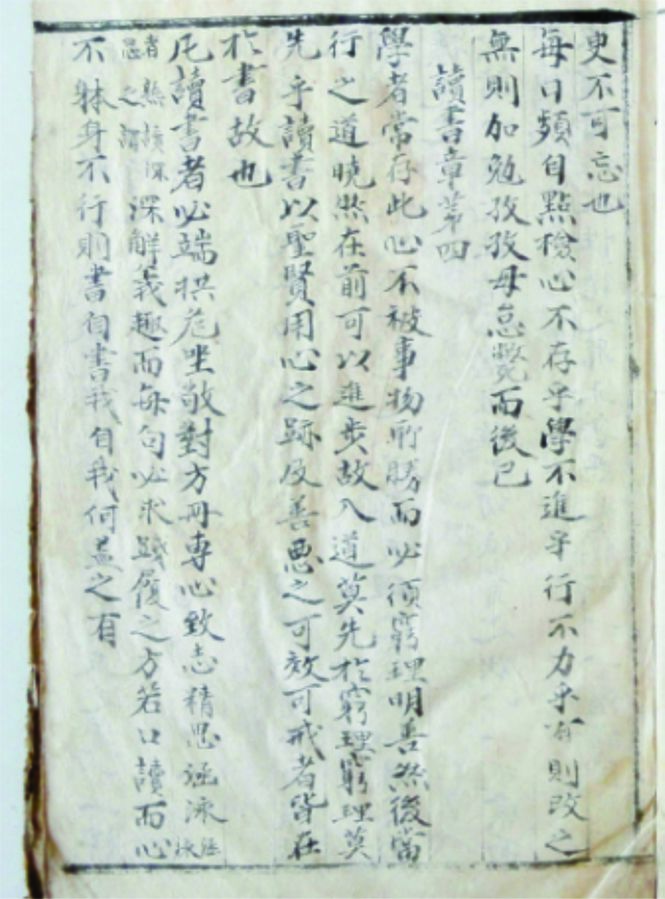 臾不可忘也
每日頻自點檢心不存乎學不進乎行不力乎有則改之
無則加勉孜孜毋怠斃而後已
讀書章第四
學者常存此心不被事物所勝而必須窮理明善然後當
行之道曉然在前可以進步故入道莫先於窮理窮理莫
先乎讀書以聖賢用心之跡及善悪之可效可戒者皆在
於書故也
凡讀書者必端拱危坐敬對方冊專心致志精思涵泳涵泳
者熟讀深思之謂深解義趣而每句必求踐履之方若口讀而心
不躰身不行則書自書我自我何益之有